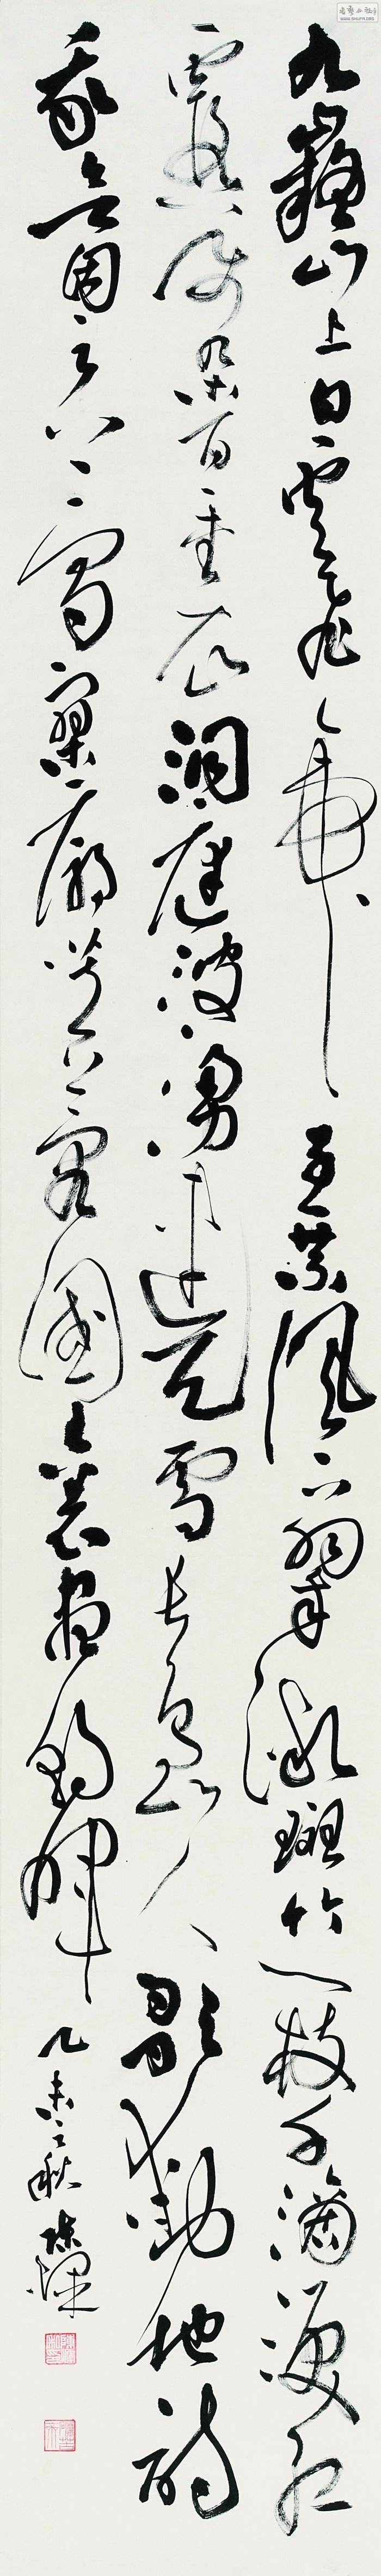 九嶷山上白雲飛帝子乘風下翠微斑竹一枝千滴淚紅
霞萬朵百重衣洞庭波湧連天雪長島人歌動地詩
我欲因之夢寥廓芙蓉國裏盡朝暉 乙未之秋